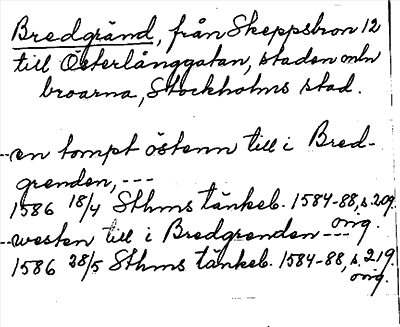 Bredgränd, från Skeppsbron 12
till Österlånggatan, staden mln
broarna, Stockholms stad.
--en tompt östenn till i Bred-
grenden, ---
1586 18/4 Sthms tänkeb. 1584-88, s. 209.
orig.
--westen till i Bredgrenden ---
1586 28/5 Sthms tänkeb. 1584-88, s. 219.
orig.